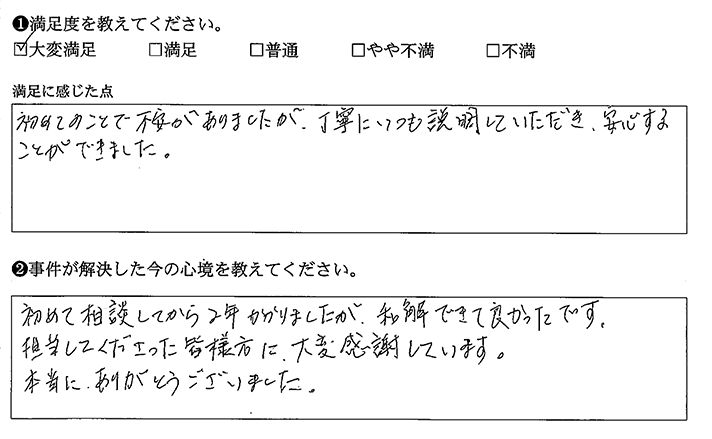 ❶満足度を教えてください。
☑大変満足 □満足 □普通 □やや不満 □不満
満足に感じた点
初めてのことで不安がありましたが、丁寧にいつも説明していただき、安心する
ことができました。
❷事件が解決した今の心境を教えてください。
初めて相談してから2年かかりましたが、和解できて良かったです。
担当してくださった皆様方に、大変感謝しています。
本当に、ありがとうございました。